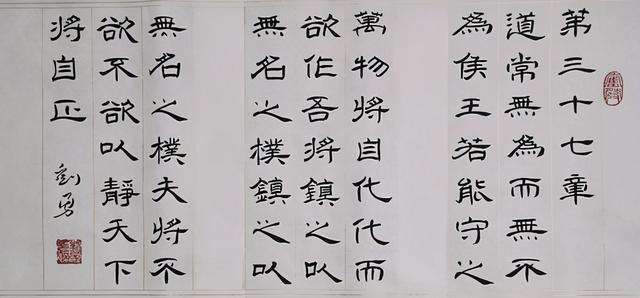 第三十七章
道常無為而無不
為侯王若能守之
萬物將自化化而
欲作吾將鎮之以
無名之樸鎮之以
無名之樸夫將不
欲不欲以靜天下
將自正
劉勇